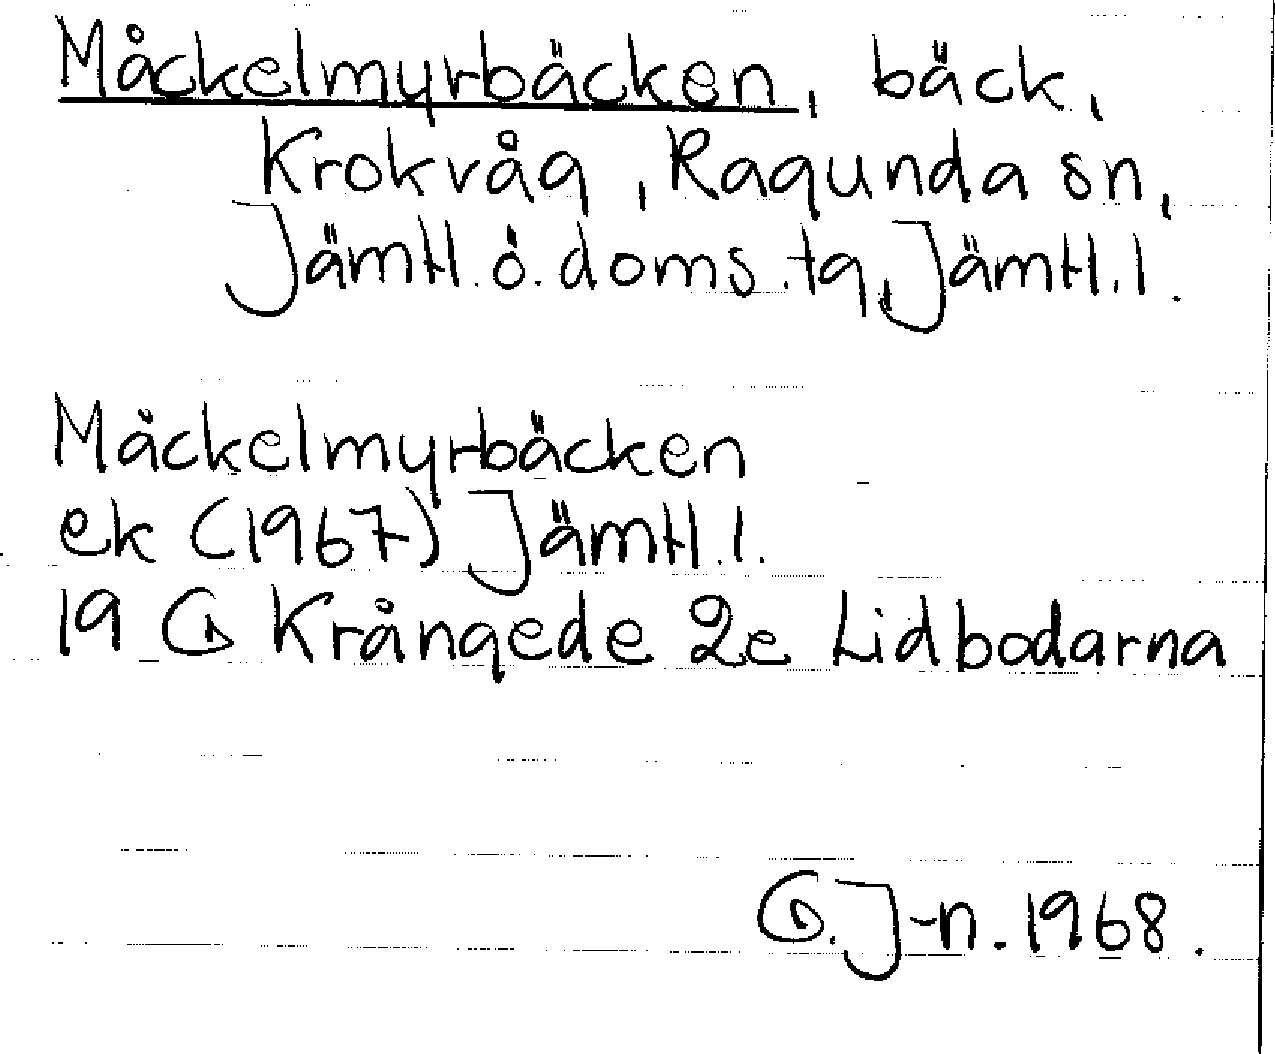 Måckelmyrbäcken, bäck,
Krokvåg, Ragunda sn,
Jämtl. ö. doms. tg, Jämtl. l.
Måckelmyrbäcken
ek (1967) Jämtl. l.
19 G Krångede 2e Lidbodarna
G. J-n. 1968.